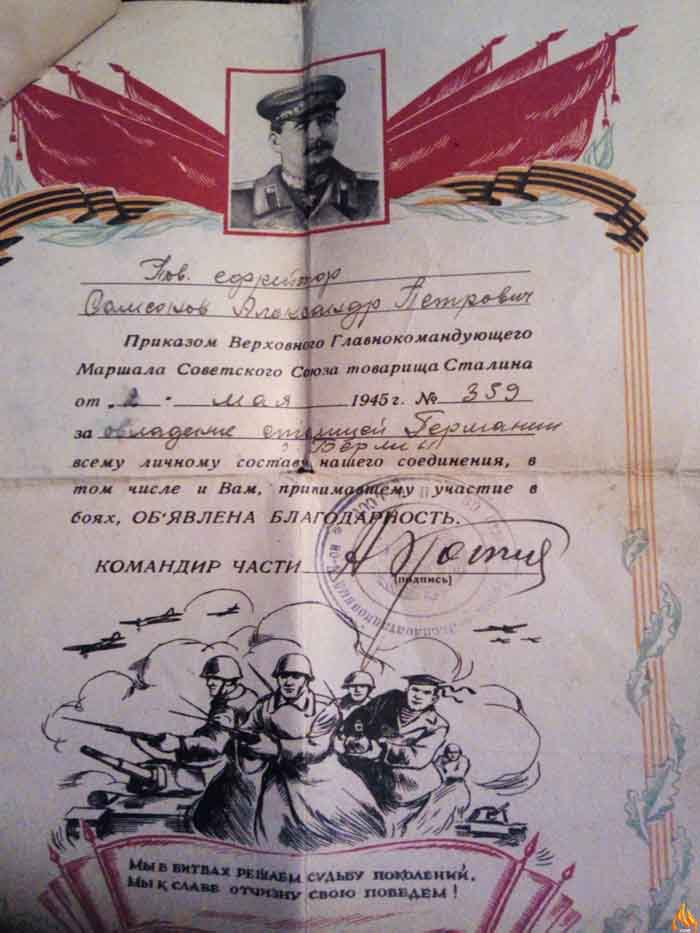 Тов. ефрейтор
Самсонов Александр Петрович
Приказом Верховного Главнокомандующего
Маршала Советского Союза товарища Сталина
от „2 " мая 1945 г. № 359
за овладение столицей Германии
Берлин
всему личному составу нашего соединения, в
том числе и Вам, принимавшему участие в
боях, ОБ'ЯВЛЕНА БЛАГОДАРНОСТЬ.
КОМАНДИР ЧАСТИ
(подпись)
МЫ В БИТВАХ РЕШАЕМ СУДЬБУ ПОКОЛЕНИЙ,
МЫ К СЛАВЕ ОТЧИЗНУ СВОЮ ПОВЕДЕМ!